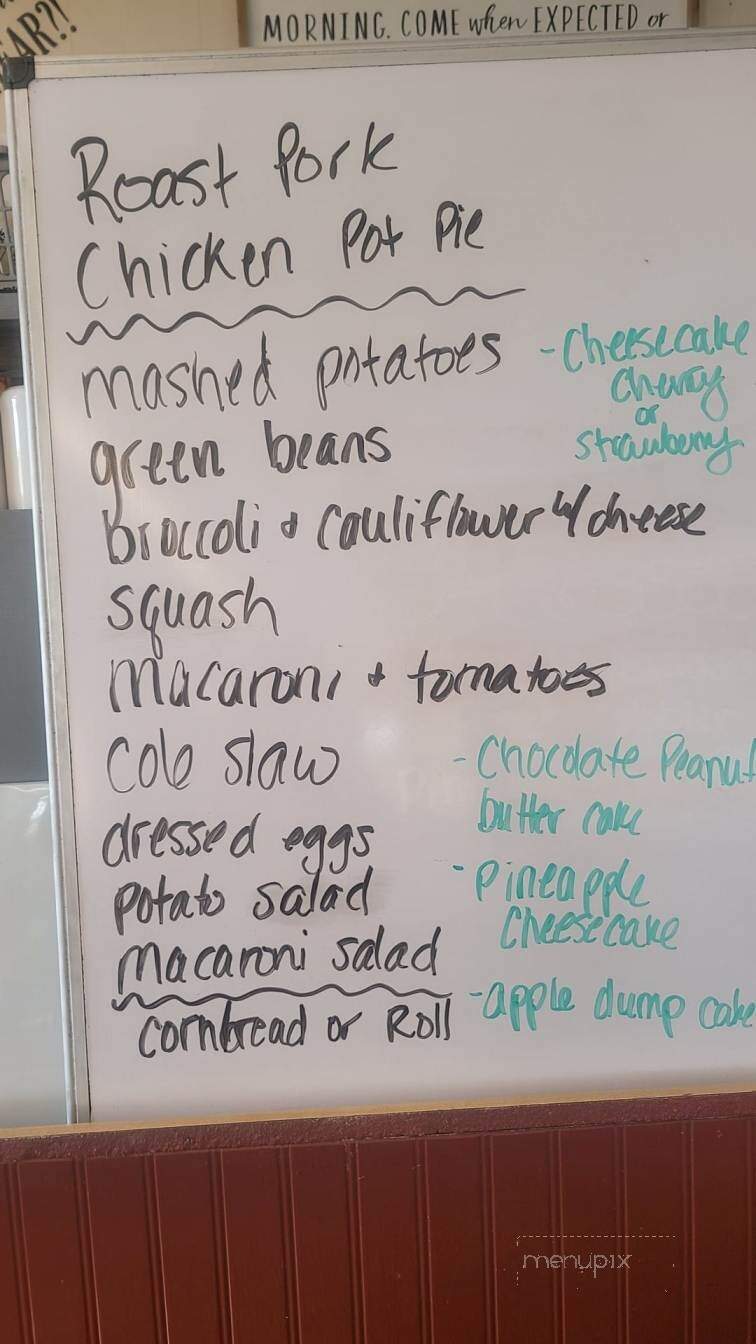 AR?!
MORNING. COME when EXPECTED or
Roast Pork
Chicken Pot Pie
mashed potatoes
green beans
broccoli & cauliflower w/ cheese
squash
macaroni & tomatoes
cole slaw
dressed eggs
potato salad
macaroni salad
cornbread or Roll
- Cheesecake
cherry
or
strawberry
- Chocolate Peanut
butter cake
- Pineapple
Cheesecake
- apple dump cake
menupix